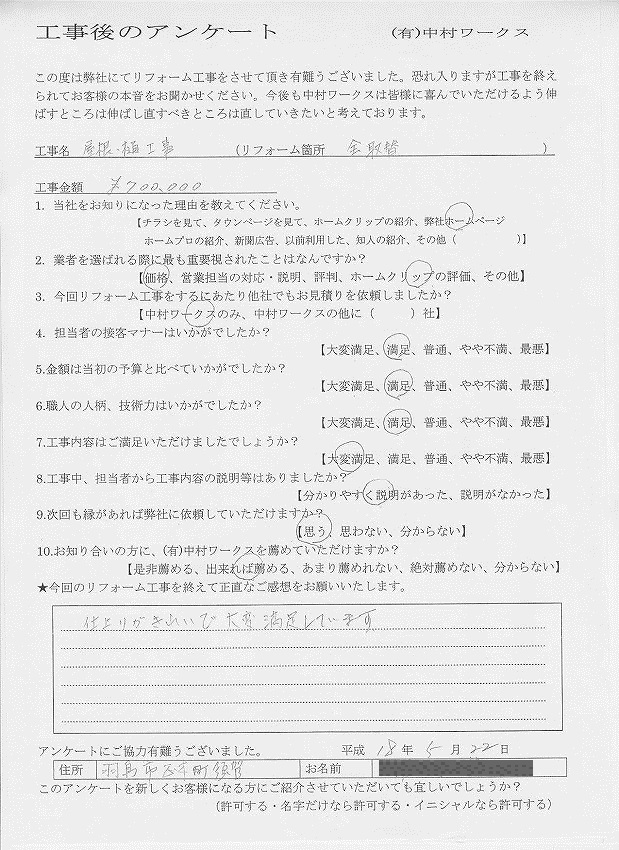 工事後のアンケート (有)中村ワークス
この度は弊社にてリフォーム工事をさせて頂き有難うございました。恐れ入りますが工事を終え
られてお客様の本音をお聞かせください。今後も中村ワークスは皆様に喜んでいただけるよう伸
ばすところは伸ばし直すべきところは直していきたいと考えております。
工事名 屋根・樋工事 (リフォーム箇所 全取替 )
工事金額 ¥700,000
1. 当社をお知りになった理由を教えてください。
【チラシを見て、タウンページを見て、ホームクリップの紹介、弊社ホームページ
ホームプロの紹介、新聞広告、以前利用した、知人の紹介、その他( )】
2. 業者を選ばれる際に最も重要視されたことはなんですか?
【価格、営業担当の対応・説明、評判、ホームクリップの評価、その他】
3. 今回リフォーム工事をするにあたり他社でもお見積りを依頼しましたか?
【中村ワークスのみ、中村ワークスの他に( )社】
4. 担当者の接客マナーはいかがでしたか?
【大変満足、満足、普通、やや不満、最悪】
5.金額は当初の予算と比べていかがでしたか?
【大変満足、満足、普通、やや不満、最悪】
6.職人の人柄、技術力はいかがでしたか?
【大変満足、満足、普通、やや不満、最悪】
7.工事内容はご満足いただけましたでしょうか?
【大変満足、満足、普通、やや不満、最悪】
8.工事中、担当者から工事内容の説明等はありましたか?
【分かりやすく説明があった、説明がなかった】
9.次回も縁があれば弊社に依頼していただけますか?
【思う、思わない、分からない】
10.お知り合いの方に、(有)中村ワークスを薦めていただけますか?
【是非薦める、出来れば薦める、あまり薦めれない、絶対薦めない、分からない】
★今回のリフォーム工事を終えて正直なご感想をお願いいたします。
仕上りがきれいで大変満足しています
アンケートにご協力有難うございました。 平成 18 年 5 月 22 日
住所 羽島市 町須賀 お名前
このアンケートを新しくお客様になる方にご紹介させていただいても宜しいでしょうか?
(許可する・名字だけなら許可する・イニシャルなら許可する)